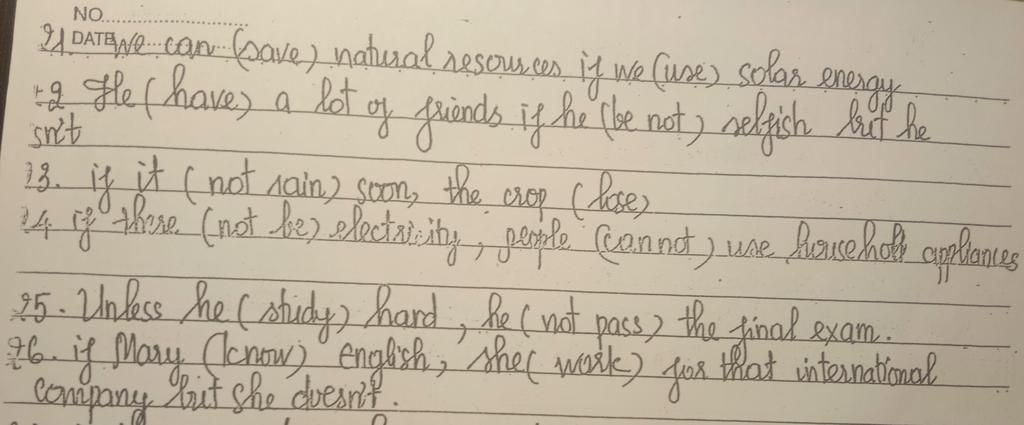 NO.
21. DATE We can (save) natural resources if we (use) solar energy
22 He (have) a lot of friends if he (be not) selfish but he
isn't
23. if it (not rain) soon, the crop (lose)
24 if there (not be) electricity, people (cannot) use household appliances
25. Unless he (study) hard, he (not pass) the final exam.
26. if Mary (know) english, she (work) for that international
company but she doesn't.